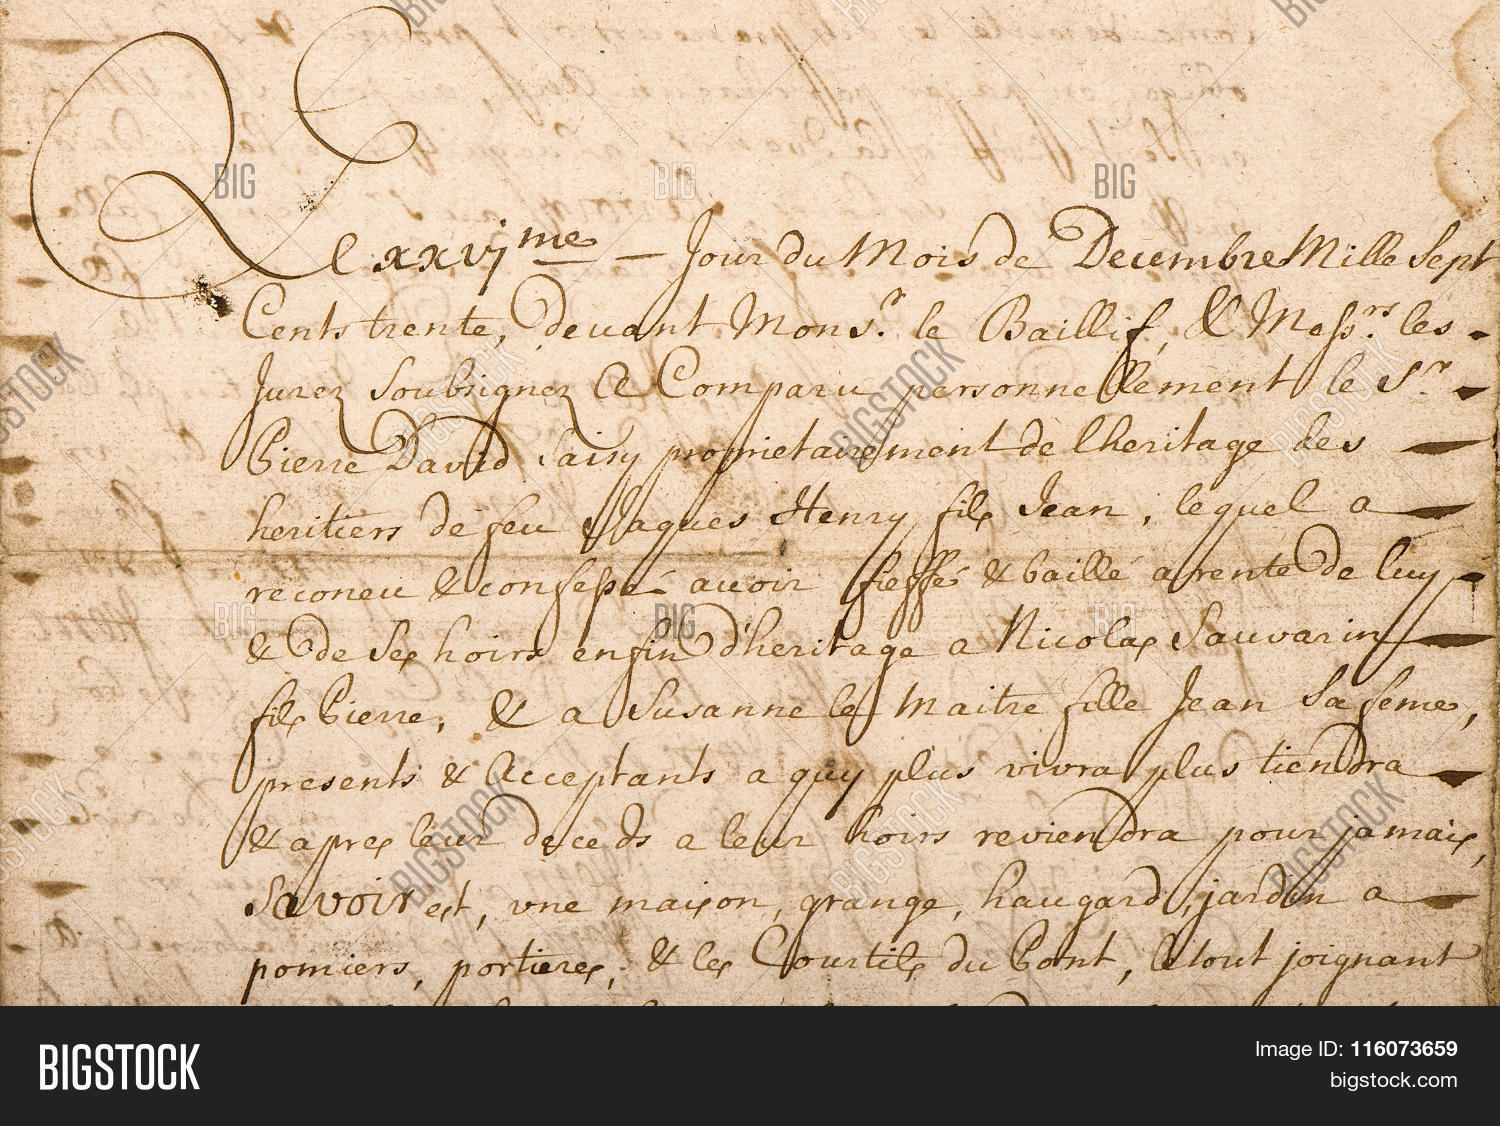 Le xxvj.me — Jour du Mois de Decembre Mille Sept
Cents trente, devant Mons.r le Baillif, & Mess.rs les
Jurez Soubsignez a Comparu personnellement le S.r
Pierre David Saisy proprietairement de lheritage des
heritiers de feu Jaques Henry fils Jean, lequel a
reconeu & confessé avoir fieffé & baillé a rente de luy
& de Ses hoirs enfin d'heritage a Nicolas Sauvarin
fils Pierre, & a Susanne le Maitre fille Jean Sa feme,
presents & Acceptants a quy plus vivra plus tiendra
& apres leur deceds a leur hoirs reviendra pour jamais,
Savoir est, vne maison, grange, haugard, jardin a
pomiers, portieres, & les Courtils du Pont, le tout joignant
BIGSTOCK
Image ID: 116073659
bigstock.com